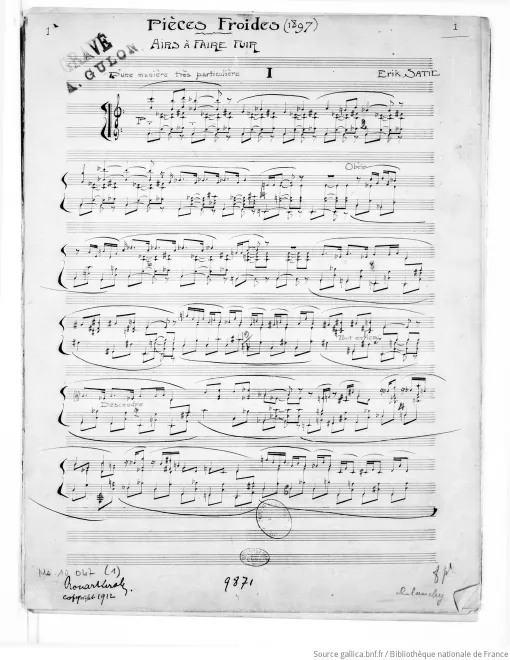 1
Pièces Froides (1897)
1
AIRS à FAIRE FUIR
GRAVÉ
A. GULON
D'une manière très particulière
I
Erik SATIE
Obéir
Descendre
Ms. 10 047 (1)
Rouart Lerolle
copyright 1912
9871
Source gallica.bnf.fr / Bibliothèque nationale de France